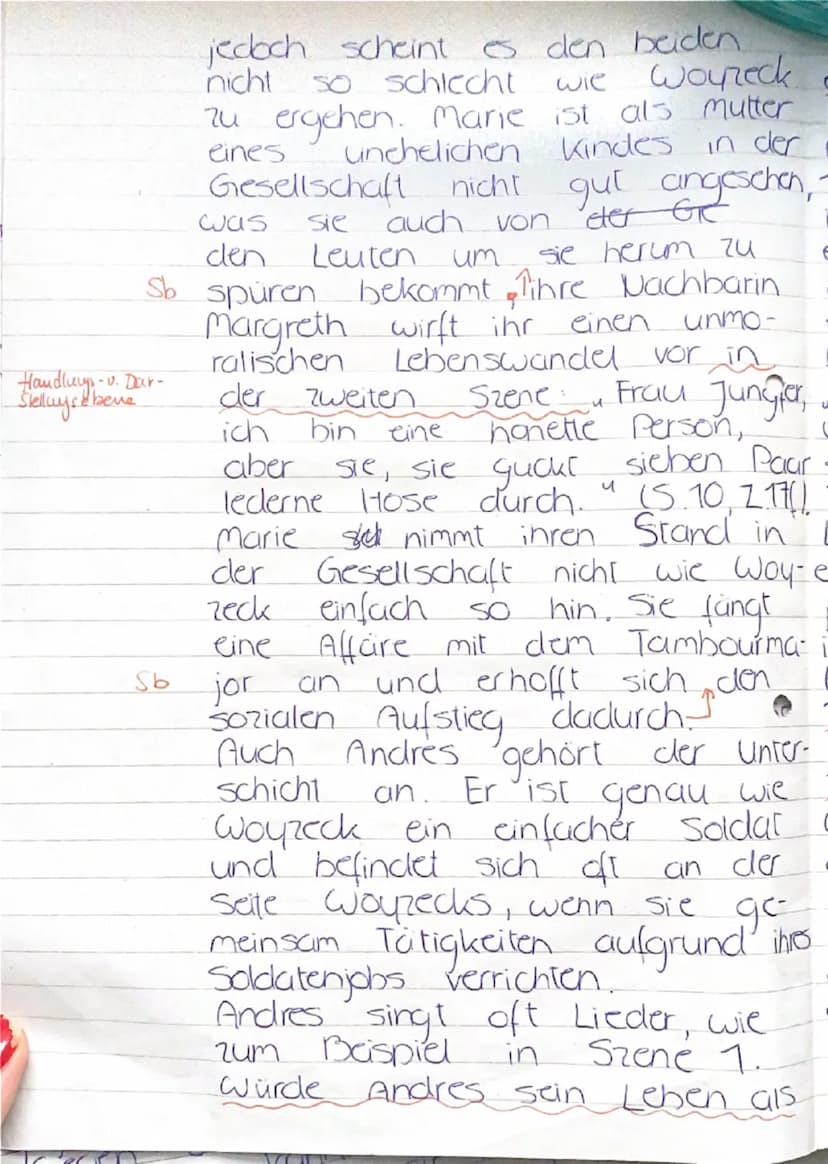 jedoch scheint es den beiden
nicht so schlecht wie Woyzeck
zu ergehen. Marie ist als Mutter
eines unehelichen Kindes in der
Gesellschaft nicht gut angesehen,
was sie auch von der Ge
den Leuten um sie herum zu
Sb spüren bekommt, ihre Nachbarin
Margreth wirft ihr einen unmo-
ralischen Lebenswandel vor in
Handlungs- u. Dar-
stellungsebene
der zweiten Szene: „Frau Jungfer,
ich bin eine honette Person,
aber sie, sie guckt sieben Paar
lederne Hose durch." (S. 10, Z. 17f).
Marie nimmt ihren Stand in
der Gesellschaft nicht wie Woy-
zeck einfach so hin. Sie fängt
eine Affäre mit dem Tambourma-
Sb jor an und erhofft sich den
sozialen Aufstieg dadurch.
Auch Andres gehört der Unter-
schicht an. Er ist genau wie
Woyzeck ein einfacher Soldat
und befindet sich oft an der
Seite Woyzecks, wenn sie ge-
meinsam Tätigkeiten aufgrund ihres
Soldatenjobs verrichten.
Andres singt oft Lieder, wie
zum Beispiel in Szene 1.
Würde Andres sein Leben als